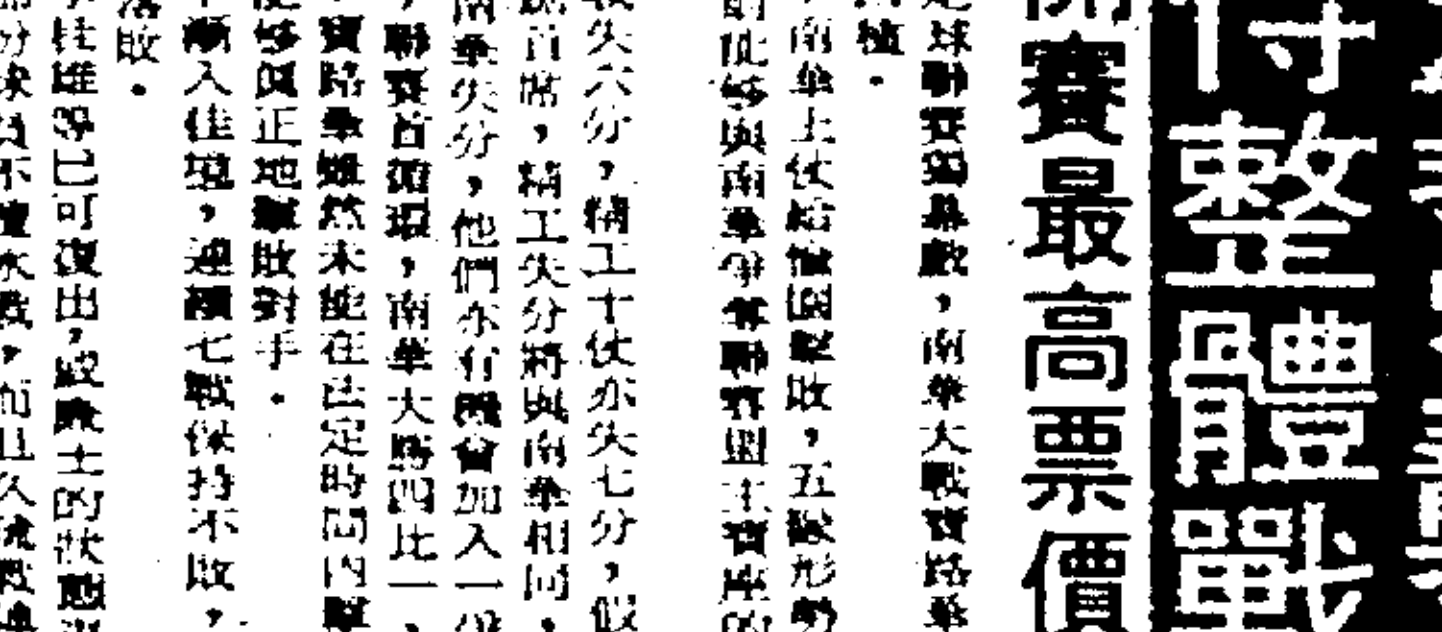 整體戰
開賽最高票價
足球聯賽揭幕戰，南華大戰寶路華
植。
南華上仗給愉園擊敗，五隊形勢
能够與南華爭奪聯賽盟主寶座的
失六分，精工十仗亦失七分，假
首席，精工失分將與南華相同，
南華失分，他們亦有機會加入一份
聯賽首循環，南華大勝四比一，
寶路華雖然未能在法定時間內擊
能够真正地擊敗對手。
漸入佳境，連續七戰保持不敗，
落敗。
桂雄等已可復出，威廉士的狀態
分球員不擅水戰，而且久疏戰陣